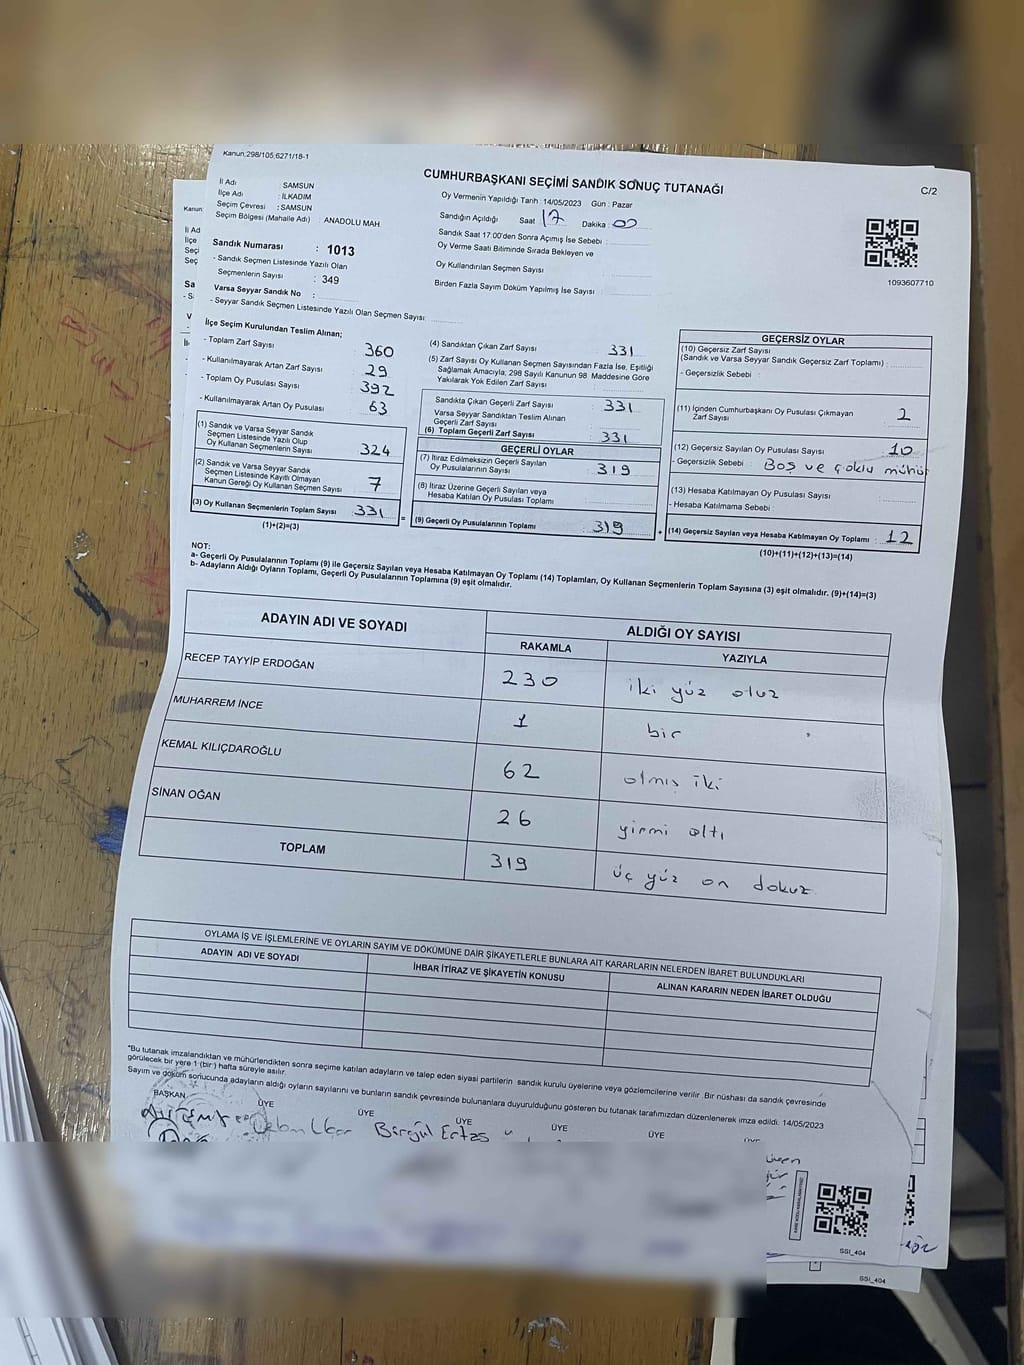 Kanun;298/105;6271/18-1
CUMHURBAŞKANI SEÇİMİ SANDIK SONUÇ TUTANAĞI
C/2
İl Adı : SAMSUN
İlçe Adı : İLKADIM
Seçim Çevresi : SAMSUN
Seçim Bölgesi (Mahalle Adı) : ANADOLU MAH.
Sandık Numarası : 1013
- Sandık Seçmen Listesinde Yazılı Olan
Seçmenlerin Sayısı : 349
Varsa Seyyar Sandık No :
- Seyyar Sandık Seçmen Listesinde Yazılı Olan Seçmen Sayısı:
Oy Vermenin Yapıldığı Tarih : 14/05/2023 Gün : Pazar
Sandığın Açıldığı Saat 17 Dakika : 00
Sandık Saat 17:00'den Sonra Açımış İse Sebebi :
Oy Verme Saati Bitiminde Sırada Bekleyen ve
Oy Kullandırılan Seçmen Sayısı
Birden Fazla Sayım Döküm Yapılmış İse Sayısı :
1093607710
İlçe Seçim Kurulundan Teslim Alınan;
- Toplam Zarf Sayısı 360
- Kullanılmayarak Artan Zarf Sayısı 29
- Toplam Oy Pusulası Sayısı 392
- Kullanılmayarak Artan Oy Pusulası 63
(1) Sandık ve Varsa Seyyar Sandık
Seçmen Listesinde Yazılı Olup
Oy Kullanan Seçmenlerin Sayısı 324
(2) Sandık ve Varsa Seyyar Sandık
Seçmen Listesinde Kayıtlı Olmayan
Kanun Gereği Oy Kullanan Seçmen Sayısı 7
(3) Oy Kullanan Seçmenlerin Toplam Sayısı 331
(1)+(2)=(3)
(4) Sandıktan Çıkan Zarf Sayısı 331
(5) Zarf Sayısı Oy Kullanan Seçmen Sayısından Fazla İse, Eşitliği
Sağlamak Amacıyla; 298 Sayılı Kanunun 98. Maddesine Göre
Yakılarak Yok Edilen Zarf Sayısı :
Sandıkta Çıkan Geçerli Zarf Sayısı : 331
Varsa Seyyar Sandıktan Teslim Alınan
Geçerli Zarf Sayısı
(6) Toplam Geçerli Zarf Sayısı 331
GEÇERLİ OYLAR
(7) İtiraz Edilmeksizin Geçerli Sayılan
Oy Pusulalarının Sayısı : 319
(8) İtiraz Üzerine Geçerli Sayılan veya
Hesaba Katılan Oy Pusulası Toplamı
= (9) Geçerli Oy Pusulalarının Toplamı : 319
GEÇERSİZ OYLAR
(10) Geçersiz Zarf Sayısı
(Sandık ve Varsa Seyyar Sandık Geçersiz Zarf Toplamı) :
- Geçersizlik Sebebi :
(11) İçinden Cumhurbaşkanı Oy Pusulası Çıkmayan
Zarf Sayısı : 2
(12) Geçersiz Sayılan Oy Pusulası Sayısı : 10
- Geçersizlik Sebebi : Boş ve çoklu mühür
(13) Hesaba Katılmayan Oy Pusulası Sayısı
- Hesaba Katılmama Sebebi :
+ (14) Geçersiz Sayılan veya Hesaba Katılmayan Oy Toplamı : 12
(10)+(11)+(12)+(13)=(14)
NOT:
a- Geçerli Oy Pusulalarının Toplamı (9) ile Geçersiz Sayılan veya Hesaba Katılmayan Oy Toplamı (14) Toplamları, Oy Kullanan Seçmenlerin Toplam Sayısına (3) eşit olmalıdır. (9)+(14)=(3)
b- Adayların Aldığı Oyların Toplamı, Geçerli Oy Pusulalarının Toplamına (9) eşit olmalıdır.
ADAYIN ADI VE SOYADI
ALDIĞI OY SAYISI
RAKAMLA YAZIYLA
RECEP TAYYİP ERDOĞAN 230 iki yüz otuz
MUHARREM İNCE 1 bir
KEMAL KILIÇDAROĞLU 62 altmış iki
SİNAN OĞAN 26 yirmi altı
TOPLAM 319 üç yüz on dokuz
OYLAMA İŞ VE İŞLEMLERİNE VE OYLARIN SAYIM VE DÖKÜMÜNE DAİR ŞİKAYETLERLE BUNLARA AİT KARARLARIN NELERDEN İBARET BULUNDUKLARI
ADAYIN ADI VE SOYADI İHBAR İTİRAZ VE ŞİKAYETİN KONUSU ALINAN KARARIN NEDEN İBARET OLDUĞU
*Bu tutanak imzalandıktan ve mühürlendikten sonra seçime katılan adayların ve talep eden siyasi partilerin sandık kurulu üyelerine veya gözlemcilerine verilir. Bir nüshası da sandık çevresinde
görülecek bir yere 1 (bir) hafta süreyle asılır.
Sayım ve döküm sonucunda adayların aldığı oyların sayılarını ve bunların sandık çevresinde bulunanlara duyurulduğunu gösteren bu tutanak tarafımızdan düzenlenerek imza edildi. 14/05/2023
BAŞKAN ÜYE ÜYE ÜYE ÜYE ÜYE
Birgül Ertaş
SSI_404
SSI_404